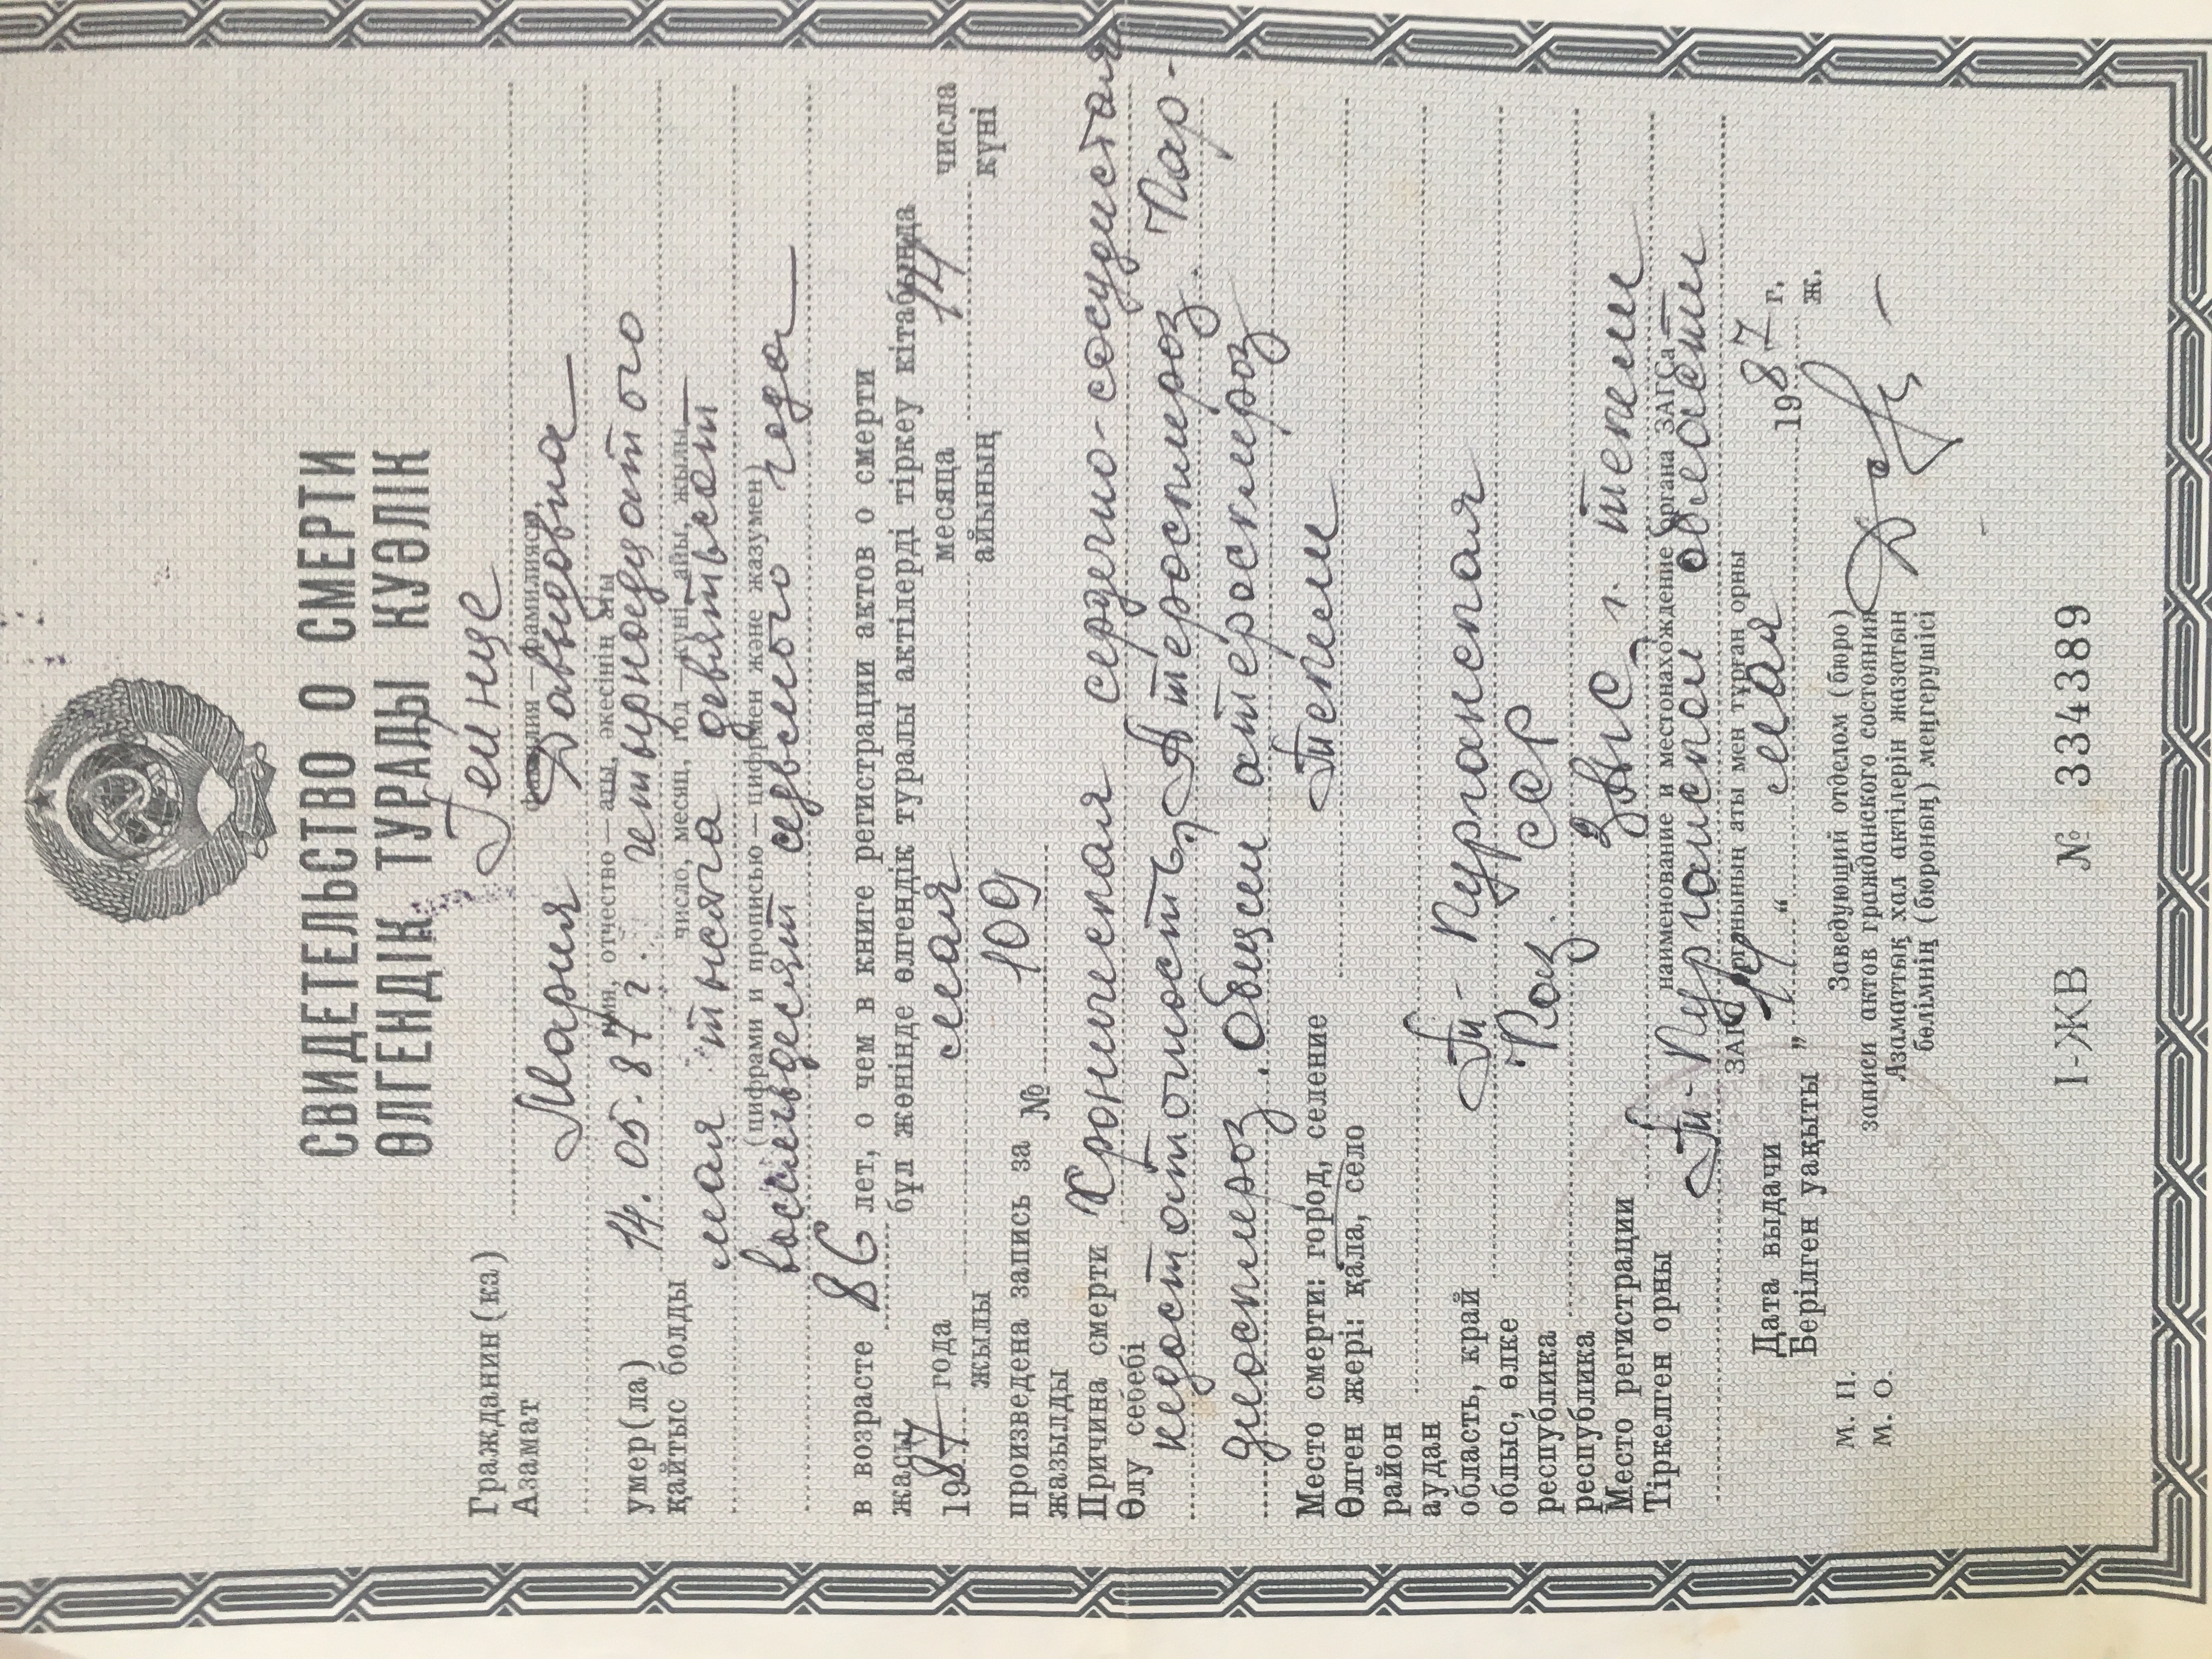 СВИДЕТЕЛЬСТВО О СМЕРТИ
ӨЛГЕНДІК ТУРАЛЫ КУӘЛІК
Гражданин(ка) Гейнце
Азамат фамилия — фамилиясы
Мария Давыдовна
имя, отчество — аты, әкесінің аты
умер(ла) 14. 05. 87 г. четырнадцатого
қайтыс болды число, месяц, год — күні, айы, жылы
мая тысяча девятьсот
(цифрами и прописью — цифрмен және жазумен)
восемьдесят седьмого года
в возрасте 86 лет, о чем в книге регистрации актов о смерти
жасы бұл жөнінде өлгендік туралы актілерді тіркеу кітабында
1987 года мая месяца 14 числа
жылы айының күні
произведена запись за № 109
жазылды
Причина смерти Хроническая сердечно-сосудистая
Өлу себебі
недостаточность, Атеросклероз. Кар-
диосклероз. Общий атеросклероз
Место смерти: город, селение Текели
Өлген жері: қала, село
район
аудан
область, край Т-Курганская
облыс, өлке
республика Каз. ССР
республика
Место регистрации ЗАГС г. Текели
Тіркелген орны наименование и местонахождение органа ЗАГСа
Т-Курганской области
ЗАГС орнының аты мен тұрған орны
Дата выдачи „ 14 “ мая 1987 г.
Берілген уақыты ж.
М. П. Заведующий отделом (бюро)
записи актов гражданского состояния
М. О. Азаматтық хал актілерін жазатын
бөлімнің (бюроның) меңгерушісі
І-ЖВ № 334389